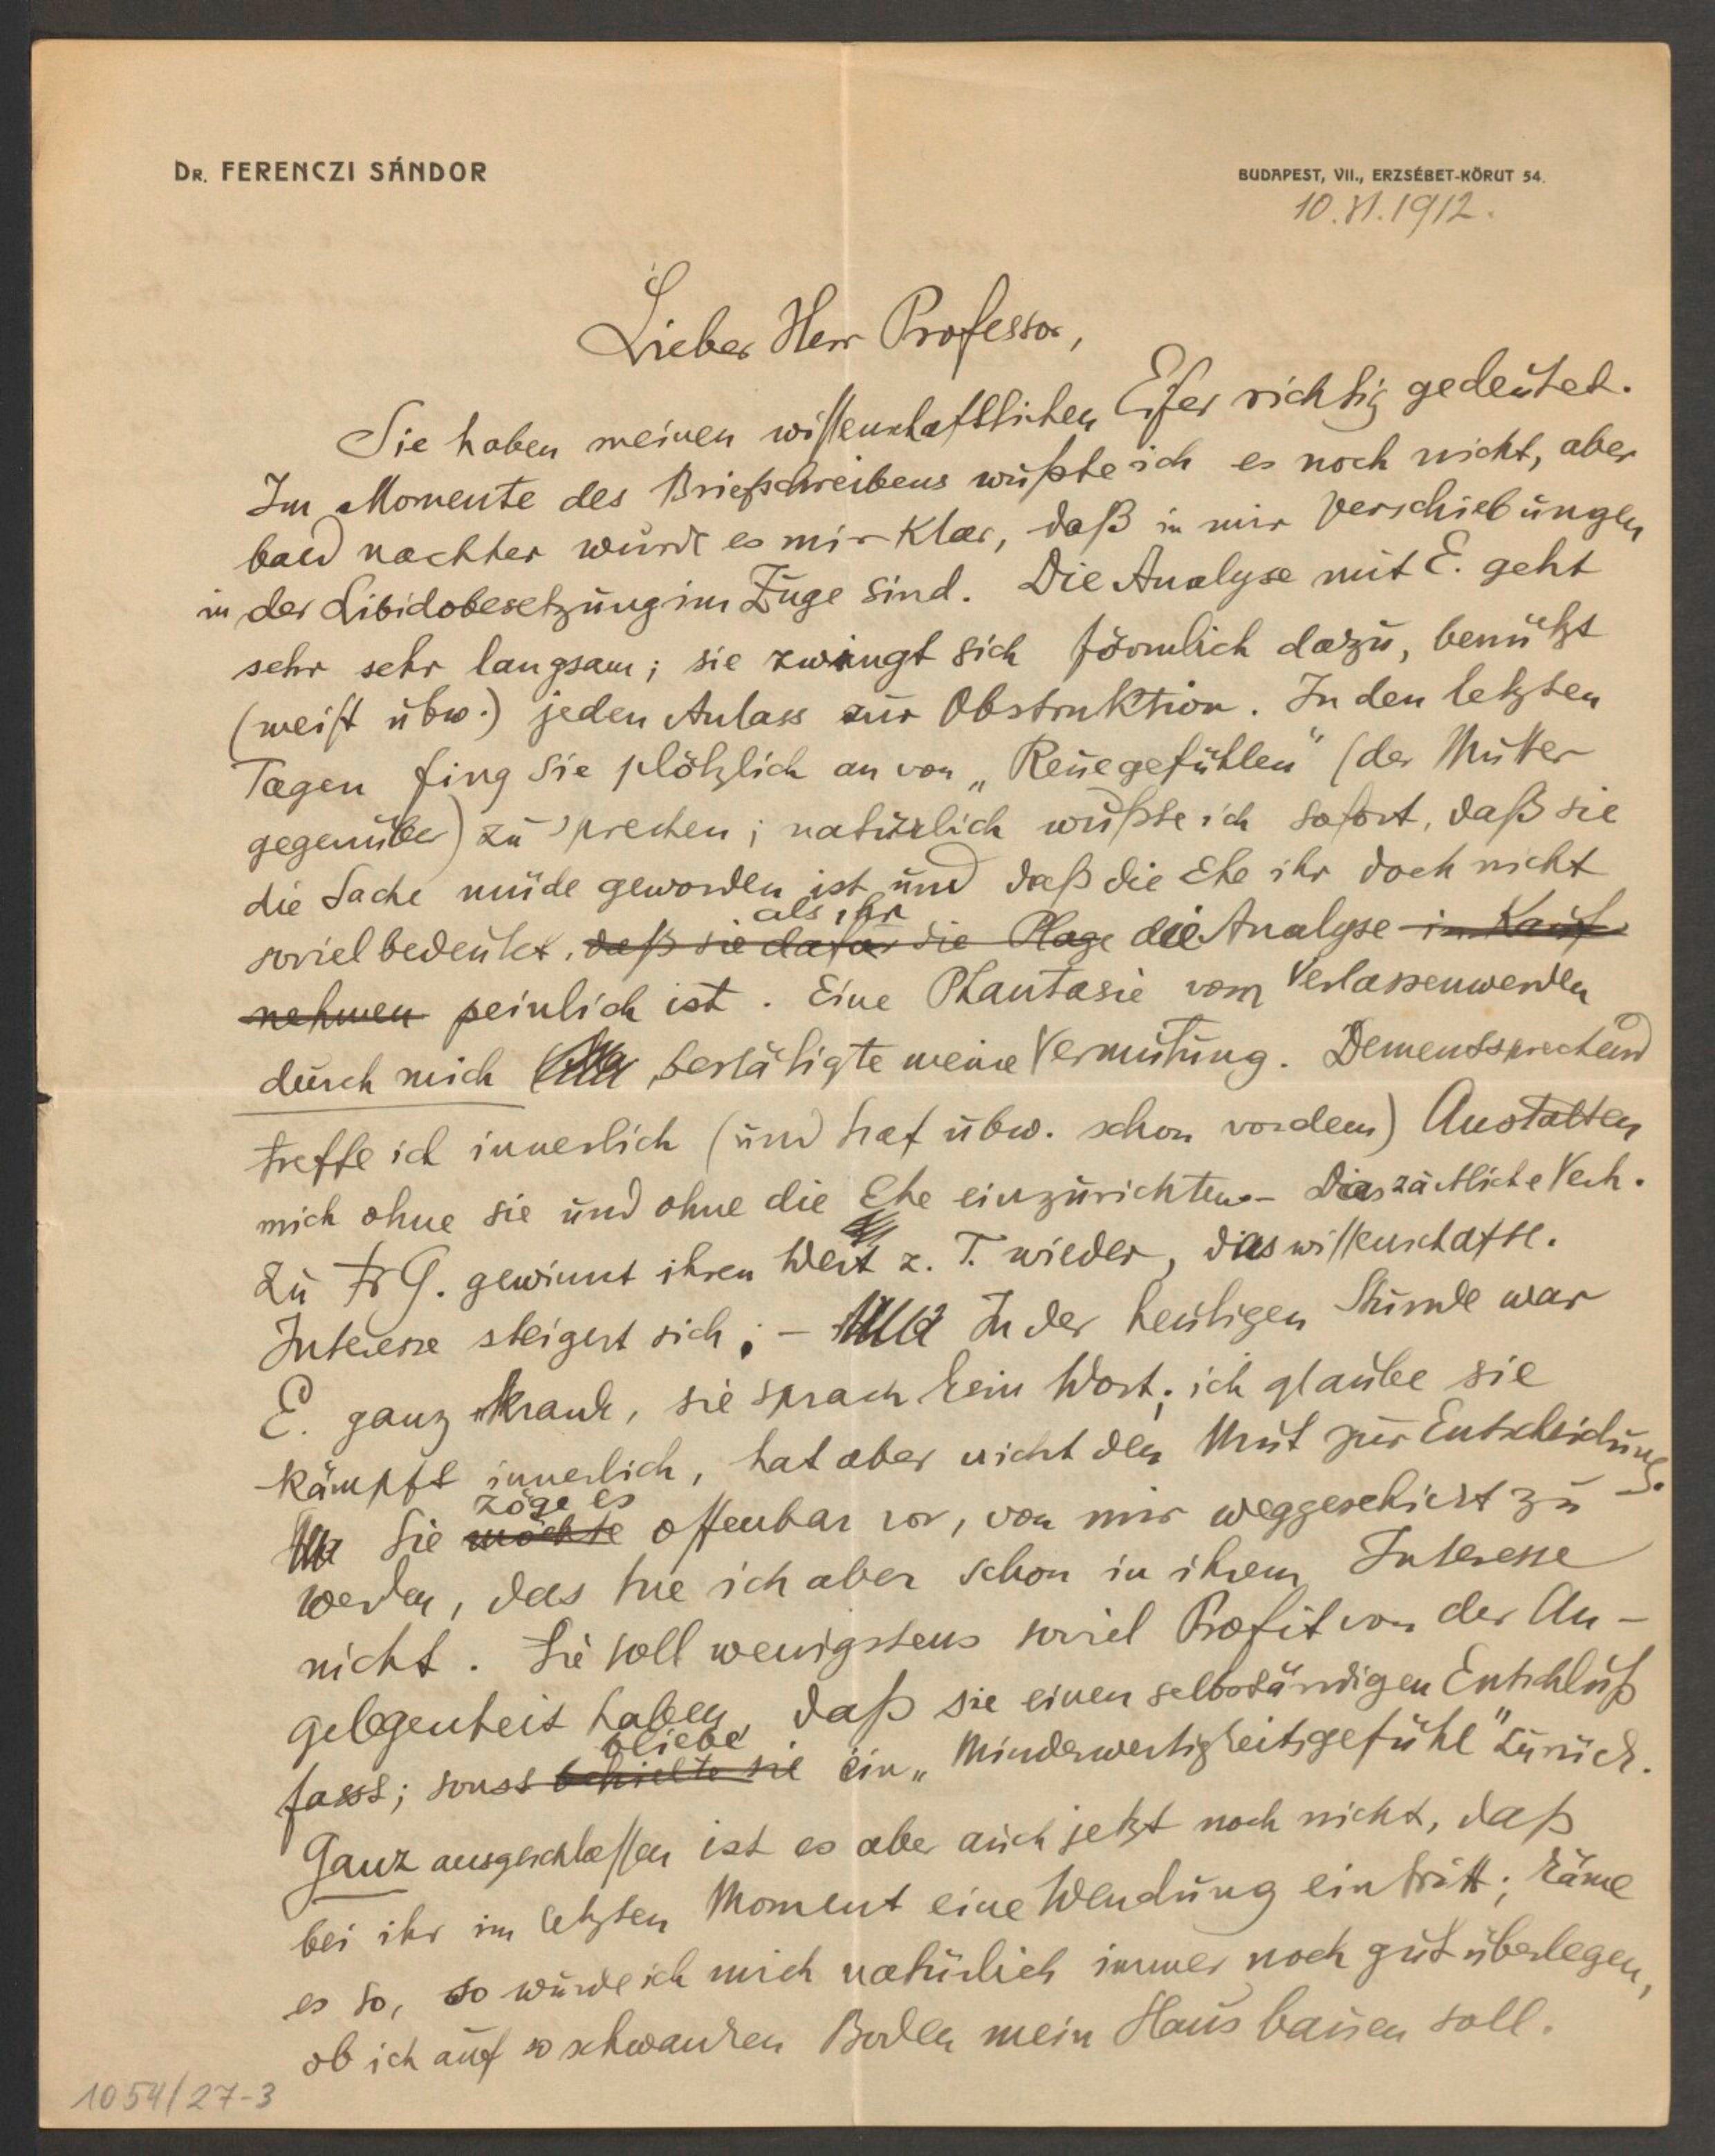 DR. FERENCZI SÁNDOR
BUDAPEST, VII., ERZSÉBET-KÖRUT 54.
10. VI. 1912.
Lieber Herr Professor,
Sie haben meinen wissenschaftlichen Eifer richtig gedeutet.
Im Momente des Briefschreibens wußte ich es noch nicht, aber
bald nachher wurde es mir klar, daß in mir Verschiebungen
in der Libidobesetzung im Zuge sind. Die Analyse mit E. geht
sehr sehr langsam; sie zwingt sich förmlich dazu, benützt
(meist übw.) jeden Anlass zur Obstruktion. In den letzten
Tagen fing sie plötzlich an von „Reuegefühlen" (der Mutter
gegenüber) zu sprechen; natürlich wußte ich sofort, daß sie
die Sache müde geworden ist und daß die Ehe ihr doch nicht
als ihr
soviel bedeutet, daß sie dafür die Plage die Analyse in Kauf
nehmen peinlich ist. Eine Phantasie vom Verlassenwerden
durch mich bestätigte meine Vermutung. Dementsprechend
treffe ich innerlich (und traf übw. schon vordem) Anstalten
mich ohne sie und ohne die Ehe einzurichten. – Das zärtliche Verh.
zu Fr G. gewinnt ihren Wert z. T. wieder, das wissenschaftl.
Interesse steigert sich; – In der heutigen Stunde war
E. ganz krank, sie sprach kein Wort; ich glaube sie
kämpft innerlich, hat aber nicht den Mut zur Entscheidung.
zöge es
Sie möchte offenbar vor, von mir weggeschickt zu
werden, das tue ich aber schon in ihrem Interesse
nicht. Sie soll wenigstens soviel Profit von der An-
gelegenheit haben, daß sie einen selbständigen Entschluß
bliebe
fasst; sonst behielte sie ein „Minderwertigkeitsgefühl" zurück.
Ganz ausgeschlossen ist es aber auch jetzt noch nicht, daß
bei ihr im letzten Moment eine Wendung eintritt; käme
es so, so würde ich mich natürlich immer noch gut überlegen,
ob ich auf so schwanken Boden mein Haus bauen soll.
1054/27-3